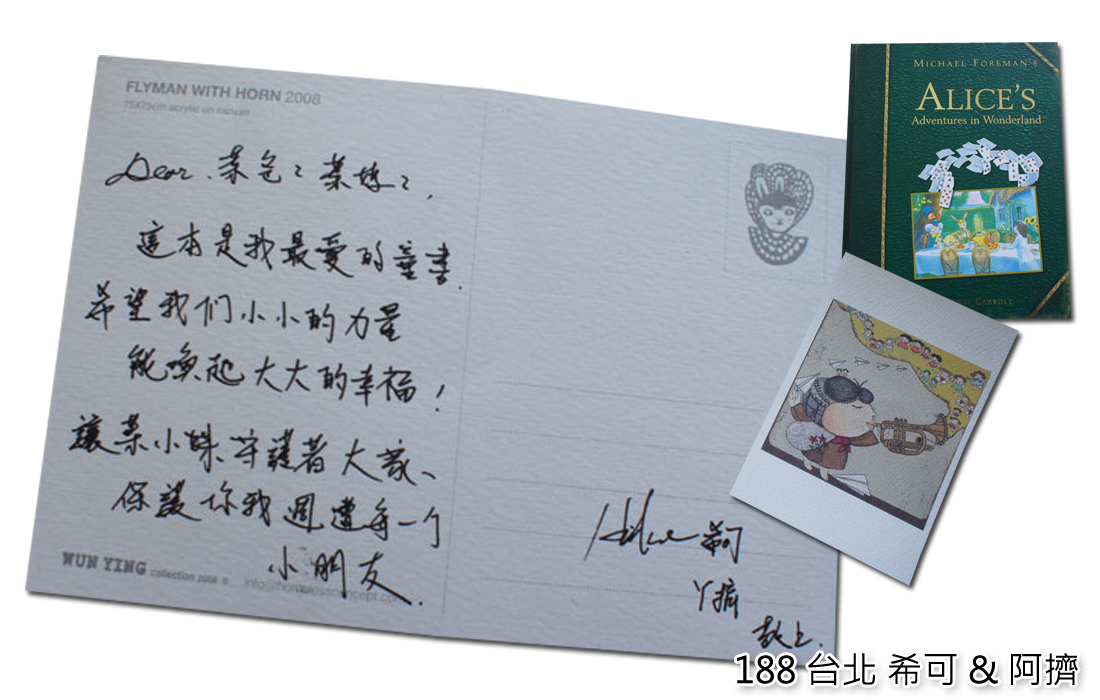 FLYMAN WITH HORN 2008
75X75cm acrylic on canvas
Dear. 菜爸、菜媽、,
這本是我最愛的童書.
希望我们小小的力量
能喚起大大的幸福!
讓菜小姝守護著大家、
保護你我週遭每一个
小朋友.
WUN YING collection 2008
希可
丫擠
敬上.
MICHAEL FOREMAN'S
ALICE'S
Adventures in Wonderland
CARROLL
188 台北 希可 & 阿擠